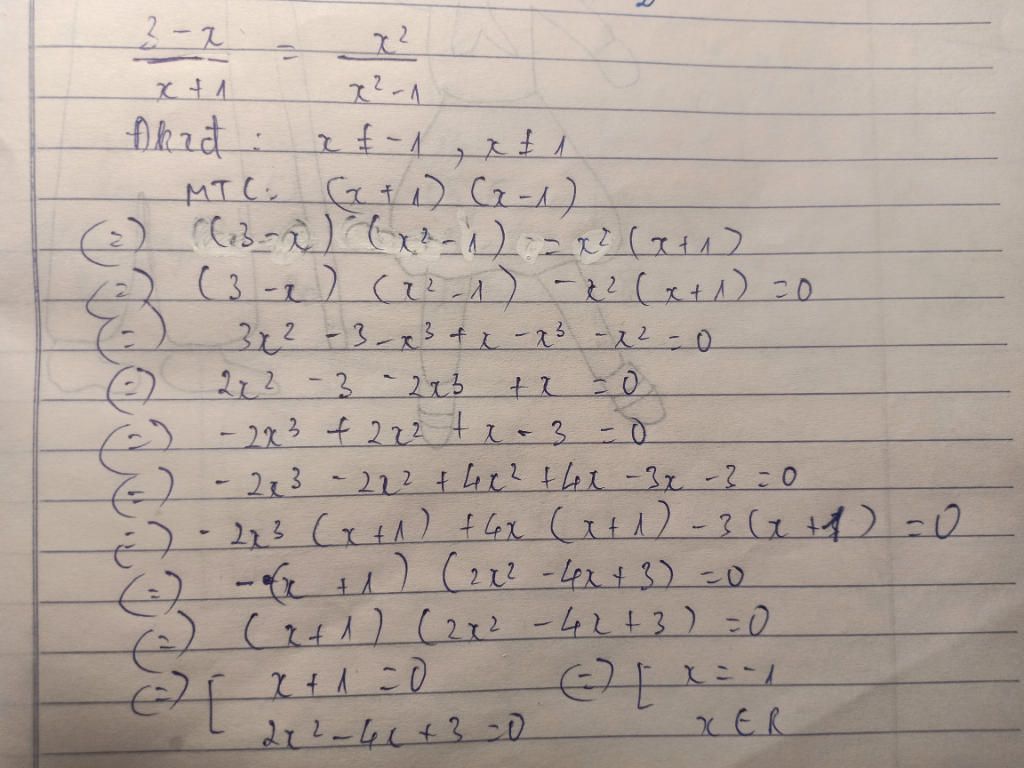 3 - x / x + 1 = x² / x² - 1
Đkxđ : x ≠ -1 , x ≠ 1
MTC: (x + 1) (x - 1)
(=) (3 - x) (x² - 1) = x² (x + 1)
(=) (3 - x) (x² - 1) - x² (x + 1) = 0
(=) 3x² - 3 - x³ + x - x³ - x² = 0
(=) 2x² - 3 - 2x³ + x = 0
(=) - 2x³ + 2x² + x - 3 = 0
(=) - 2x³ - 2x² + 4x² + 4x - 3x - 3 = 0
(=) - 2x³ (x + 1) + 4x (x + 1) - 3 (x + 1) = 0
(=) - (x + 1) (2x² - 4x + 3) = 0
(=) (x + 1) (2x² - 4x + 3) = 0
(=) [ x + 1 = 0 (=) [ x = -1
2x² - 4x + 3 = 0 x ∈ R